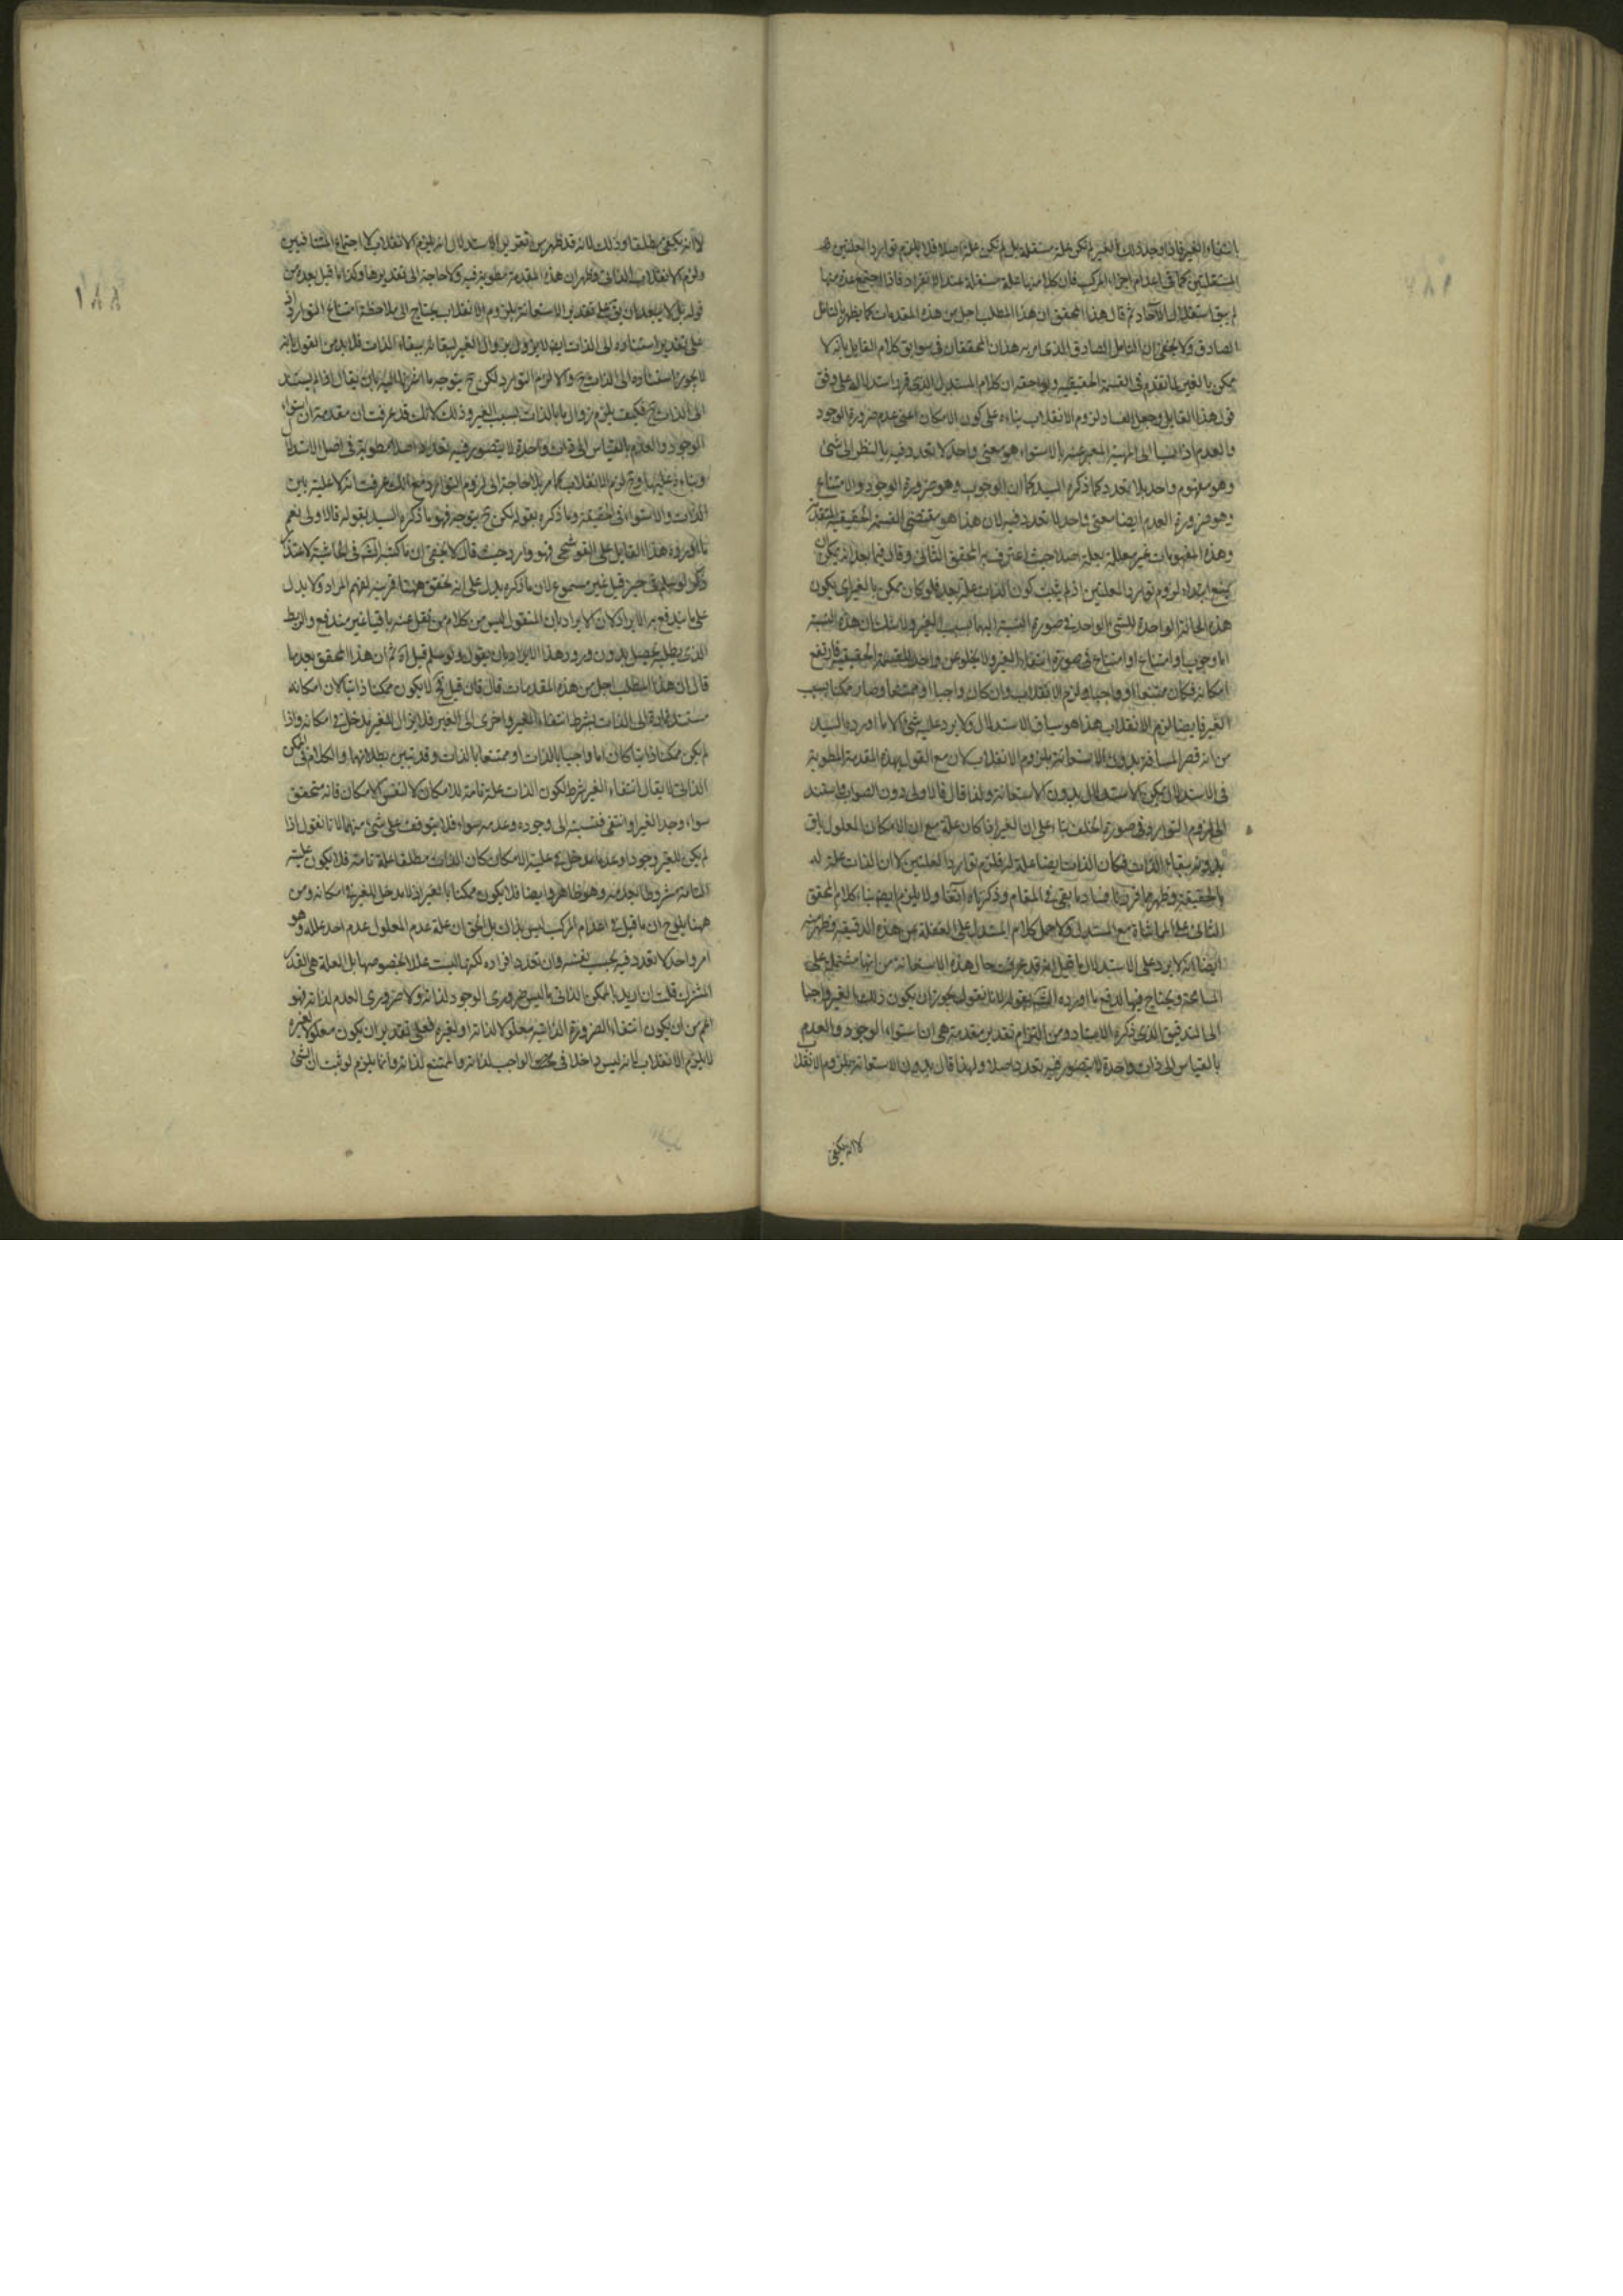 بانتفاء الغير فاذا وجد ذلك الغير لم تكن علة مستقلة بل لم تكن علة اصلا فلا يلزم توارد العلتين
المستقلتين كما فى اعدام اجزاء المركب فان كلا منها علة مستقلة عند الانفراد فاذا اجتمع عدة منها
لم يبق استقلال الآحاد ثم قال هذا المحقق ان هذا المطلب اجل من هذه المقدمات كما يظهر بالتامل
الصادق ولا يخفى ان التامل الصادق الذى امر به هذان المحققان فى سوابق كلام القايل بانه لا
ممكن بالغير لما تقدم فى القسمة الحقيقية ولواحقه ان كلام المستدل الذى قرر استدلاله على وفق
قول هذا القايل وجعل الفساد لزوم الانقلاب بناءه على كون الامكان اعنى عدم ضرورة الوجود
والعدم اذا نسبا الى المهية المعبر عنه بالاستواء هو معنى واحد لا تعدد فيه بالنظر الى شئ
وهو مفهوم واحد بلا تعدد كما ذكره السيد كما ان الوجوب وهو ضرورة الوجود والامتناع
وهو ضرورة العدم ايضا معنى واحد لا تعدد فيه لان هذا هو مقتضى القسمة الحقيقية
وهذه المفهومات غير معللة بعلة اصلا حيث اعترف به المحقق الثانى وقال فيما بعد انه يمكن ان
يمنع ابتداء لزوم توارد العلتين اذ لم يثبت كون الذات علة بعد فلو كان ممكن بالغير اى يكون
هذه الحالة الواحدة للشئ الواحد فى صورة النسبة اليهما بسبب الغير ولا شك ان هذه النسبة
اما وجوب او امتناع فى صورة انتفاء الغير ولا يخلو عن واحد للقسمة الحقيقية فارتفع
امكانه فكان ممتنعا او واجبا ولزم الانقلاب وان كان واجبا او ممتنعا وصار ممكنا بسبب
الغير فايضا لزم الانقلاب هذا هو سياق الاستدلال ولا يرد عليه شئ الا ما اورده السيد
من انه قصر المسافة بدون الاستعانة بلزوم الانقلاب لان مع القول بهذه المقدمة المطوية
فى الاستدلال يمكن الاستدلال بدون الاستعانة ولذا قال فالاولى دون الصواب واستند
الى لزوم التوارد فى صورة الخلف بناء على ان الغير اذا كان علة مع ان الامكان المعلول باق
بدونه ببقاء الذات فكان الذات ايضا علة له فلزم توارد العلتين لا ان الذات علة له
بالحقيقة وظهر مما قررنا فساد ما بقى فى المقام وذكرناه آنفا ولا يلزم ايضا بناء كلام المحقق
الثانى على المماشاة مع المستدل ولا حمل كلام المستدل على الغفلة عن هذه الدقيقة وظهر منه
ايضا انه لا يرد على الاستدلال ما قيل انه قد عرفت حال هذه الاستعانة من انها مشتملة على
المسامحة ويحتاج فيها لدفع ما اورده الشـ بقوله لانا نقول يجوز ان يكون ذلك الغير واجبا
الى التدقيق الذى ذكره الاستاد ومن التزام تقدير مقدمة هى ان استواء الوجود والعدم
بالقياس الى ذات واحدة لا يتصور فيه تعدد اصلا ولهذا قال بدون الاستعانة بلزوم الانقلاب
لا انه يكفى
١٨٨
لا انه يكفى مطلقا وذلك لانه قد ظهر من تقرير الاستدلال انه يلزم الانقلاب لا اجتماع المتنافيين
ولزوم الانقلاب الذاتى وظهر ان هذه المقدمة مطوية فيه ولا حاجة الى تقديرها وكذا ما قيل بعده من
قوله بل لا يبعد ان يق على تقدير الاستعانة بلزوم الانقلاب يحتاج الى ملاحظة امتناع التوارد اذ
على تقدير استناده الى الذات ايضا لا يزول بزوال الغير لبقائه ببقاء الذات فلا بد من القول بانه
لا يجوز استناده الى الذات ح والا لزم التوارد لكن ح يتوجه ما اشرنا اليه بان يقال اذا لم يستند
الى الذات ح فكيف يلزم زوال ما بالذات بسبب الغير وذلك لانك قد عرفت ان مقدمة ان استواء
الوجود والعدم بالقياس الى ذات واحدة لا يتصور فيه تعدد اصلا مطوية فى اصل الاستدلال
وبناءه عليها وح لزم الانقلاب كما مر بلا حاجة الى لزوم التوارد مع انك عرفت انه لا علية بين
الذات والاستواء فى الحقيقة وما ذكره بقوله لكن ح يتوجه فهو ما ذكره السيد بقوله فالاولى نعم
ما اورده هذا القايل على القوشجى فهو وارد حيث قال لا يخفى ان ما كتبه الشـ فى الحاشية
ذكر لو علم فى حيز قيل غير مسموع لان ما ذكره يدل على انه تحقق هنا قرينة لفهم المراد ولا يدل
على ما يندفع به الايراد لان الايراد بان المنقول ليس من كلام من نقل عنه باقيا غير مندفع والربط
الذى يطلبه يحصل بدون ورود هذا الايراد بان يقول ولو سلم قيل اه ثم ان هذا المحقق بعد ما
قال ان هذا المطلب اجل من هذه المقدمات قال فان قيل ح لا يكون ممكنا ذاتيا لان امكانه
مستند تارة الى الذات بشرط انتفاء الغير واخرى الى الغير فلا يزال للغير مدخل فى امكانه واذا
لم يكن ممكنا ذاتيا كان اما واجبا بالذات او ممتنعا بالذات وقد تبين بطلانهما والكلام فى الممكن
الذاتى لا يقال انتفاء الغير شرط لكون الذات علة تامة للامكان لا لنفس الامكان فانه متحقق
سواء وجد الغير او انتفى فنسبته الى وجوده وعدمه سواء فلا يتوقف على شئ منهما لانا نقول اذا
لم يكن للغير وجودا وعدما مدخل فى علية الامكان كان الذات مطلقا علة تامة فلا يكون عليته
التامة مشروطا بعدمه وهو ظاهر وايضا فلا يكون ممكنا بالغير اذ لا مدخل للغير فى امكانه ومن
ههنا يلوح ان ما قيل فى اعدام المركب ليس بذاك بل الحق ان علة عدم المعلول عدم احد علله وهو
امر واحد لا تعدد فيه بحسب نفسه وان تعدد افراده لكنها ليست عللا بخصوصها بل العلة هى القدر
المشترك قلت ان اريد بالممكن الذاتى ما ليس ضرورى الوجود لذاته ولا ضرورى العدم لذاته فهو
اعم من ان يكون انتفاء الضرورة الذاتية معلولا لذاته او لغيره فعلى تقدير ان يكون معلولا لغيره
لا يلزم الانقلاب لانه ليس داخلا فى الواجب لذاته والممتنع لذاته وانما يلزم لو ثبت ان الشئ